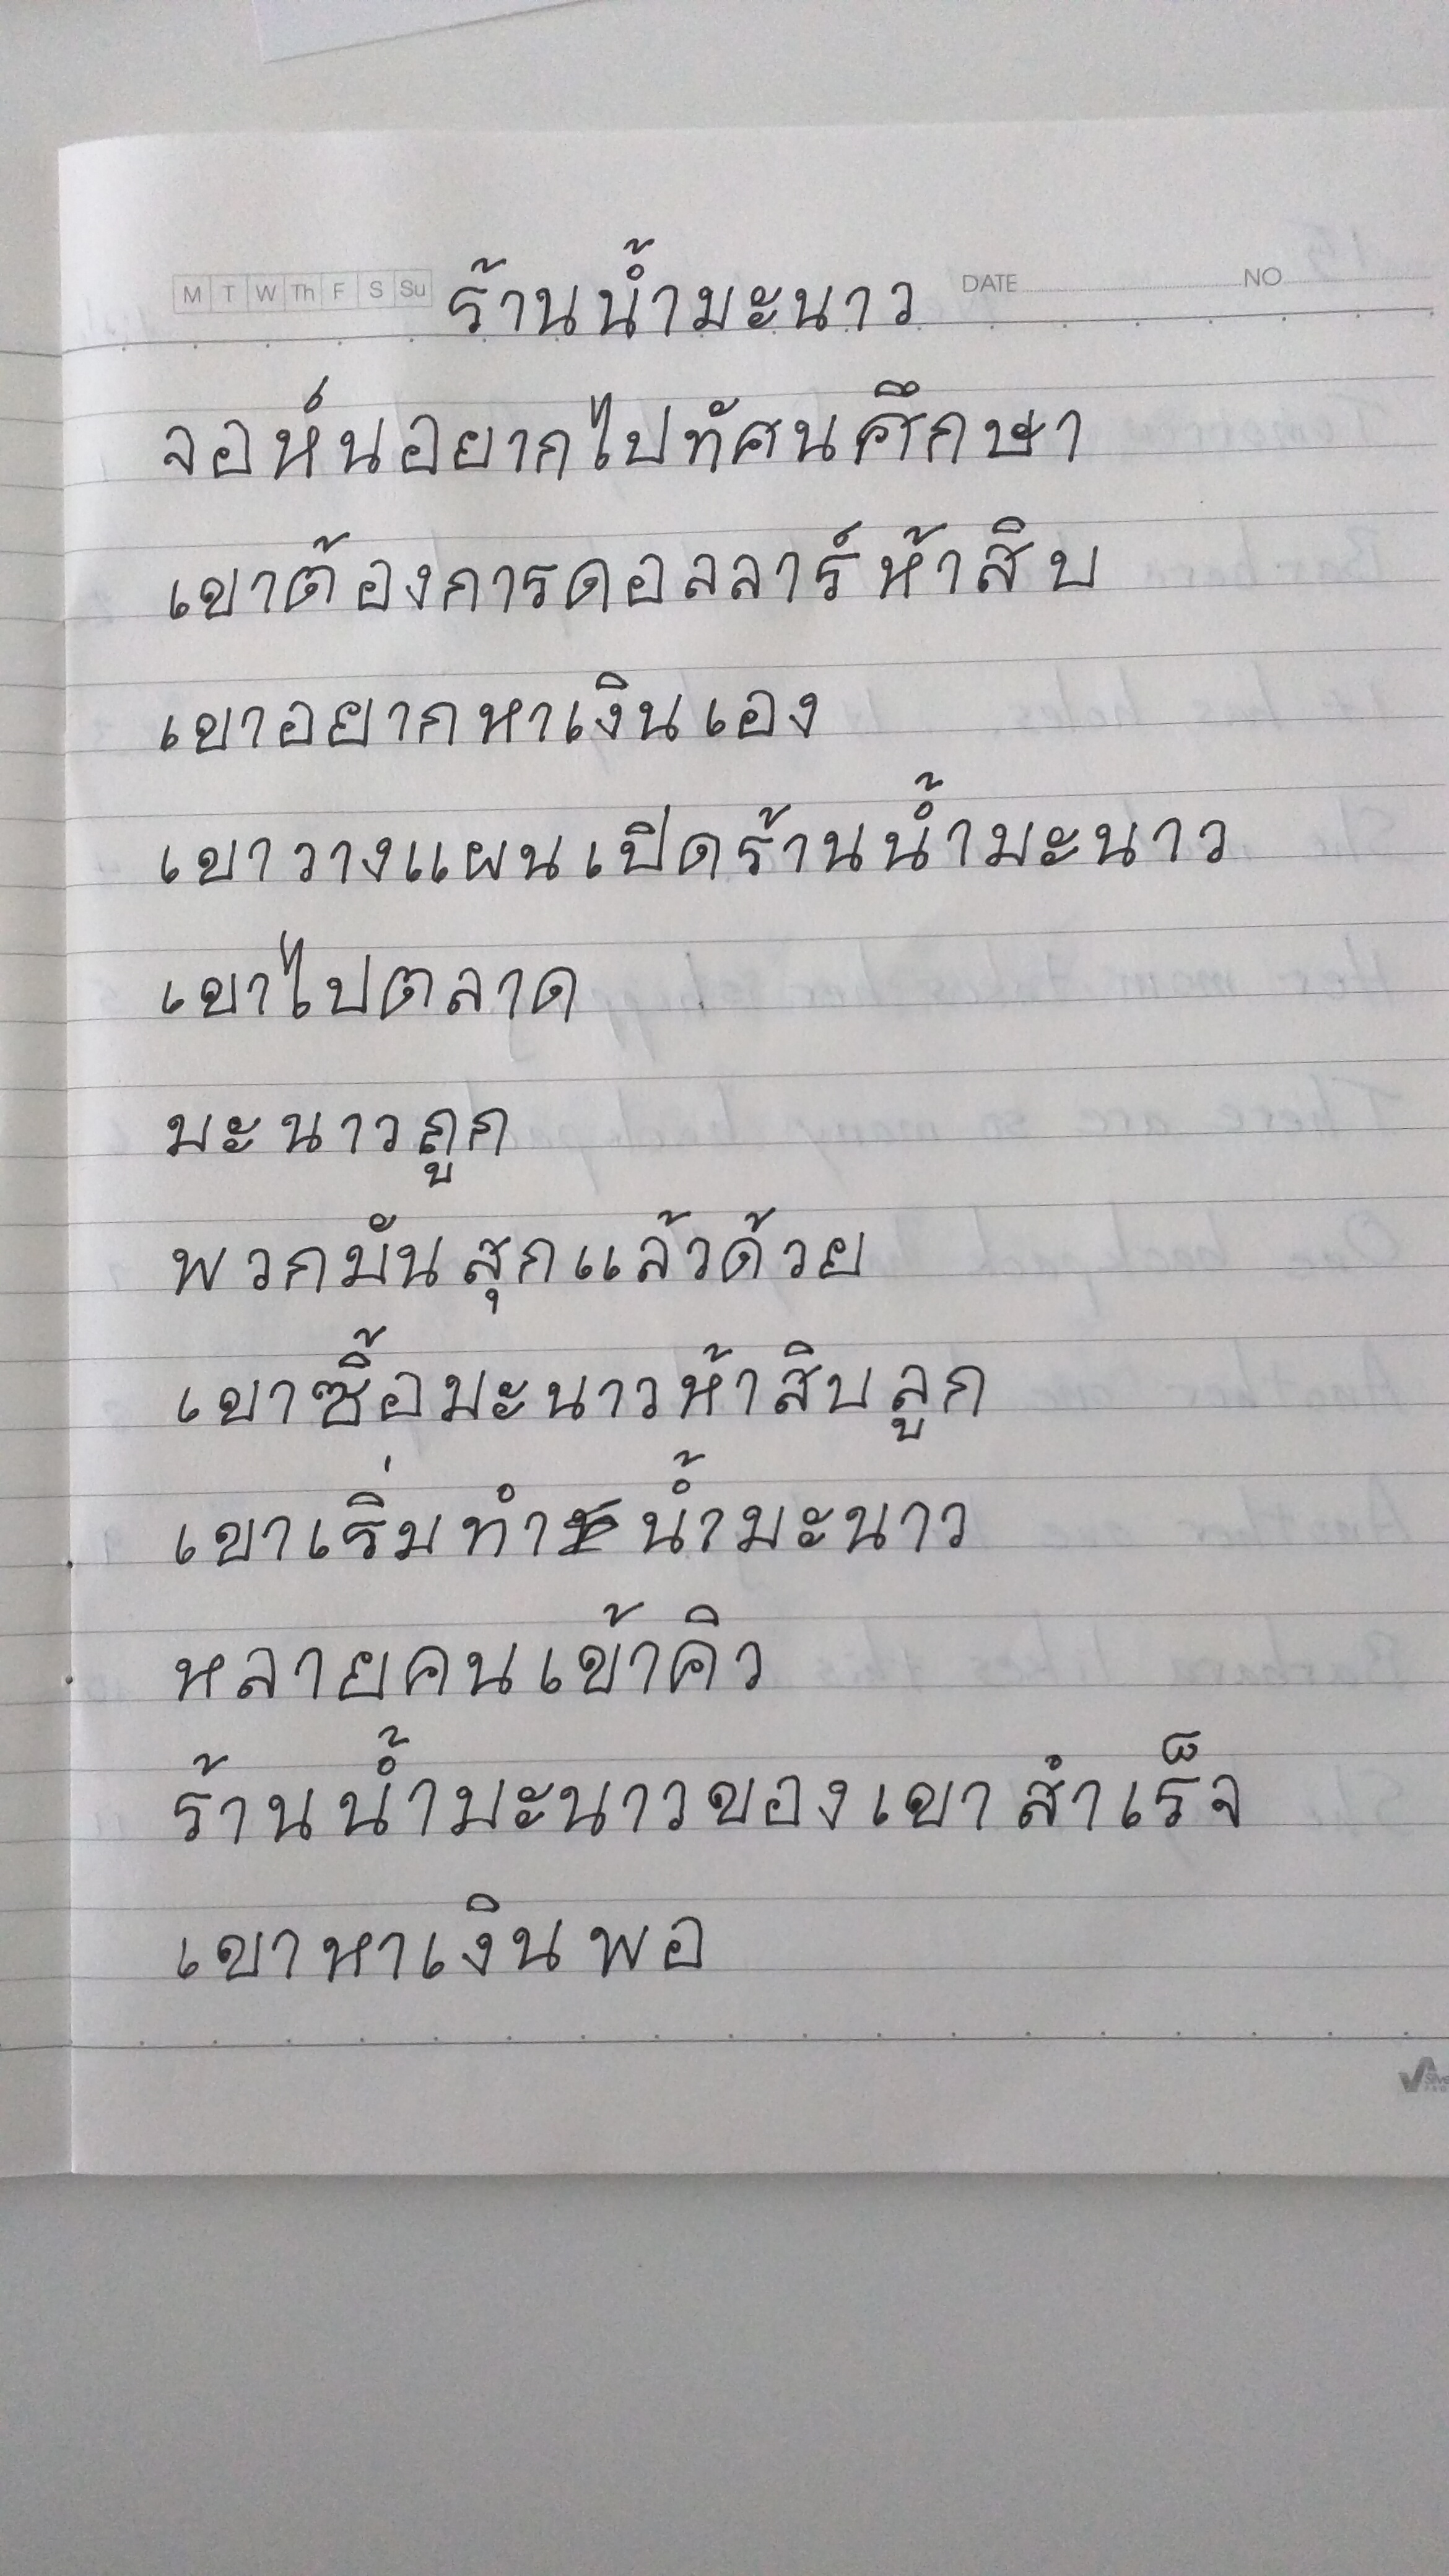 M T W Th F S Su ร้านน้ำมะนาว DATE NO
จอห์นอยากไปทัศนศึกษา
เขาต้องการดอลลาร์ห้าสิบ
เขาอยากหาเงินเอง
เขาวางแผนเปิดร้านน้ำมะนาว
เขาไปตลาด
มะนาวถูก
พวกมันสุกแล้วด้วย
เขาซื้อมะนาวห้าสิบลูก
เขาเริ่มทำน้ำมะนาว
หลายคนเข้าคิว
ร้านน้ำมะนาวของเขาสำเร็จ
เขาหาเงินพอ